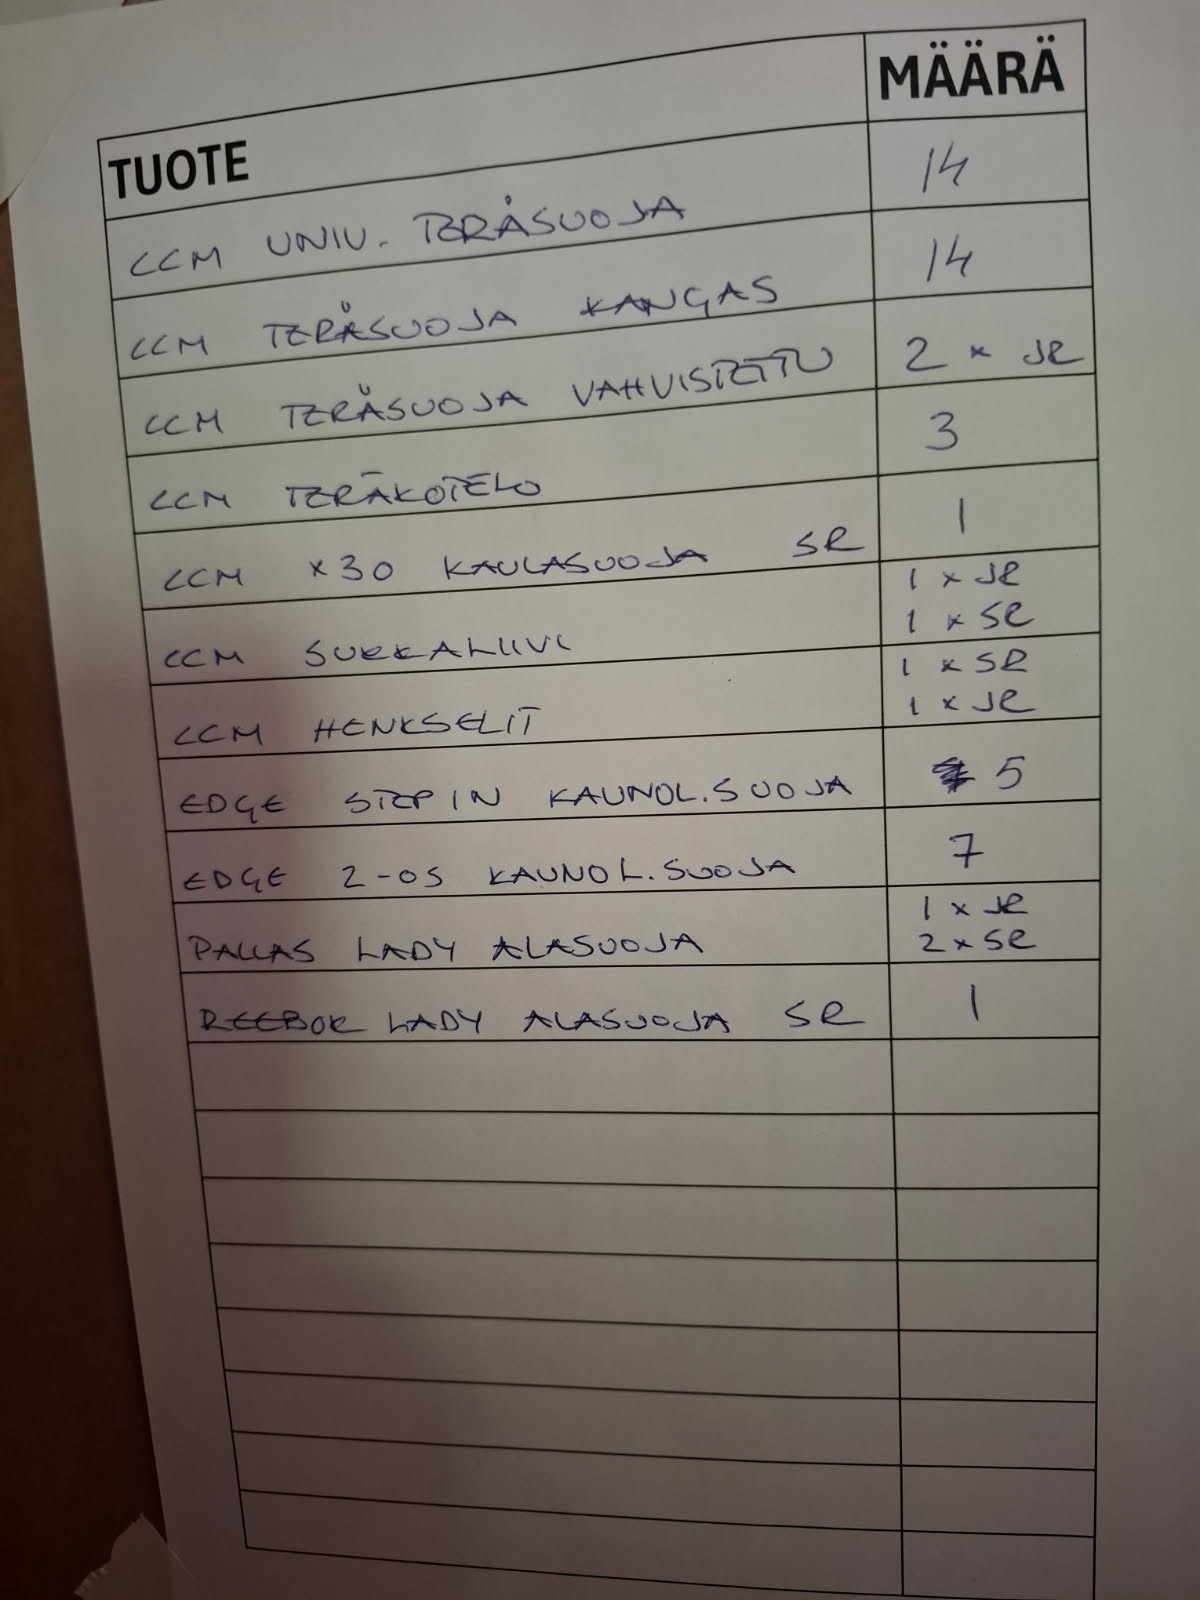 TUOTE MÄÄRÄ
CCM UNIV. TERÄSUOJA 14
CCM TERÄSUOJA KANGAS 14
CCM TERÄSUOJA VAHVISTETTU 2 x JR
CCM TERÄKOTELO 3
CCM x30 KAULASUOJA SR 1
CCM SUKKALIIVI 1 x JR
1 x SR
CCM HENKSELIT 1 x SR
1 x JR
EDGE STEP IN KAUNOL.SUOJA 5
EDGE 2-OS KAUNOL.SUOJA 7
PALLAS LADY ALASUOJA 1 x JR
2 x SR
REEBOK LADY ALASUOJA SR 1